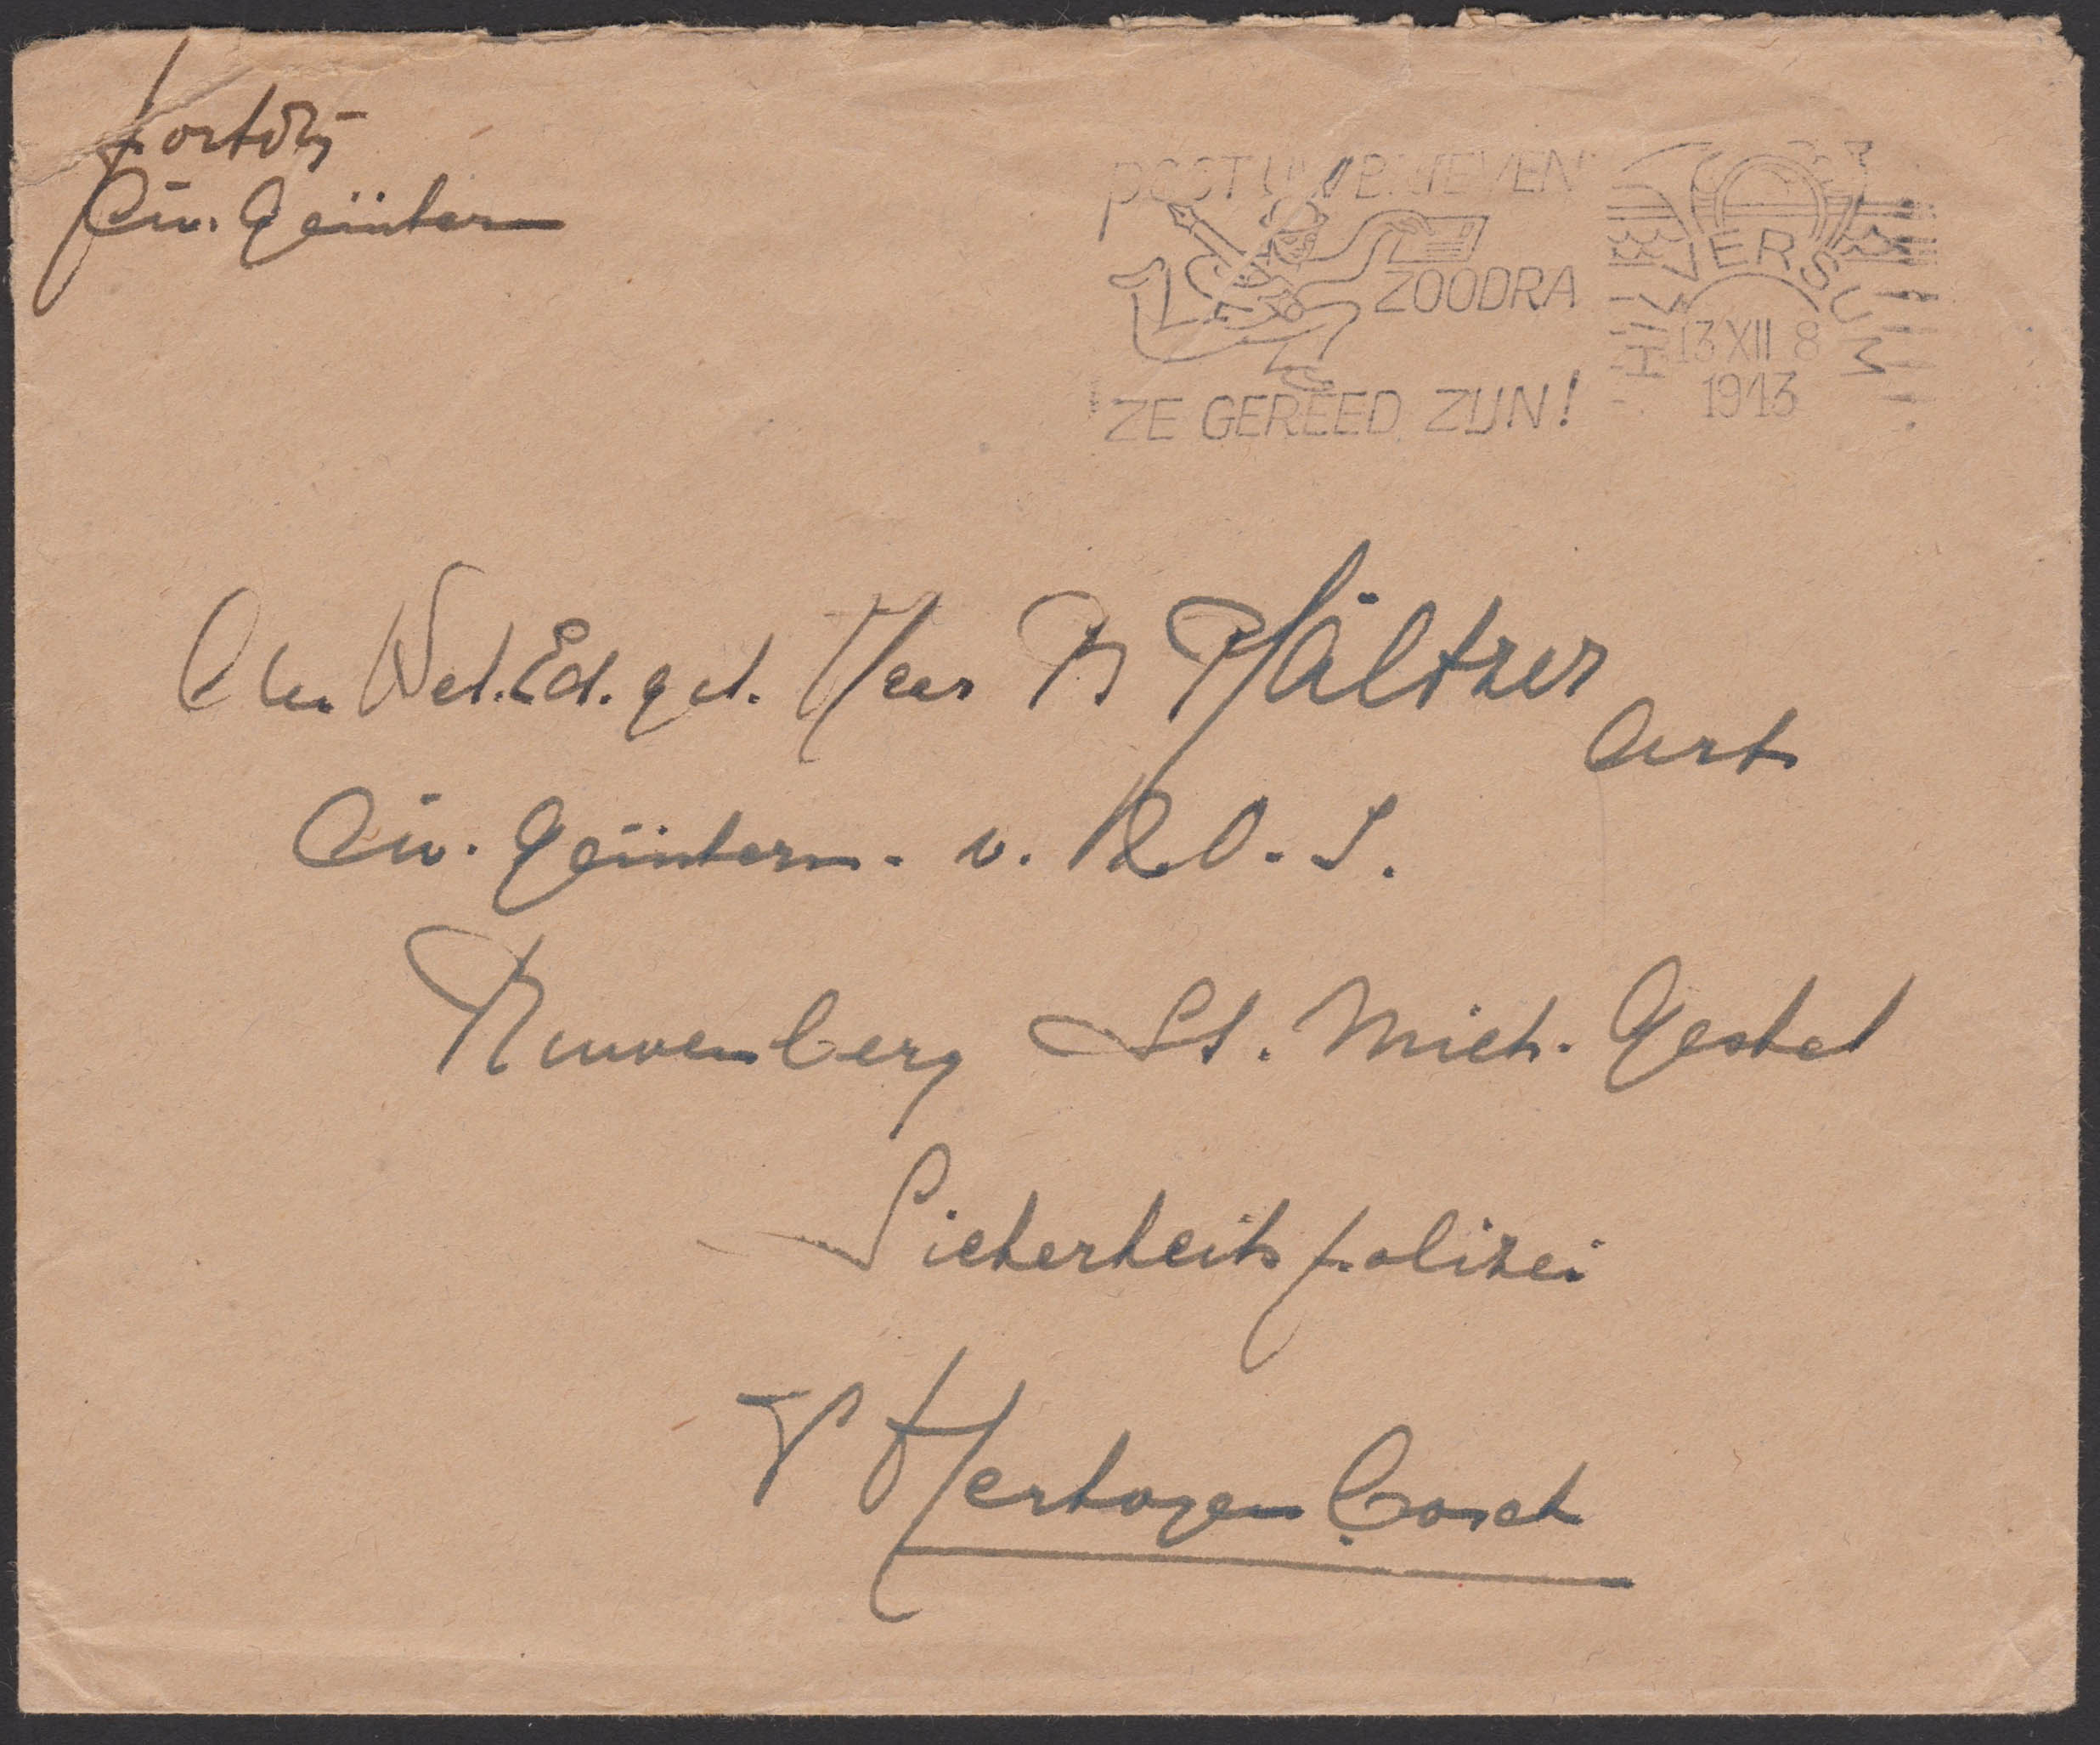 portvrij
Civ. Geïntern
POST UW BRIEVEN
ZOODRA
ZE GEREED ZIJN!
HILVERSUM
13 XII 8
1943
Den Wel.Ed.gel. Heer P Pfältzer
Arts
Civ. Geïntern. v.
Ruwenberg St. Mich. Gestel
Sicherheitspolizei
's Hertogenbosch